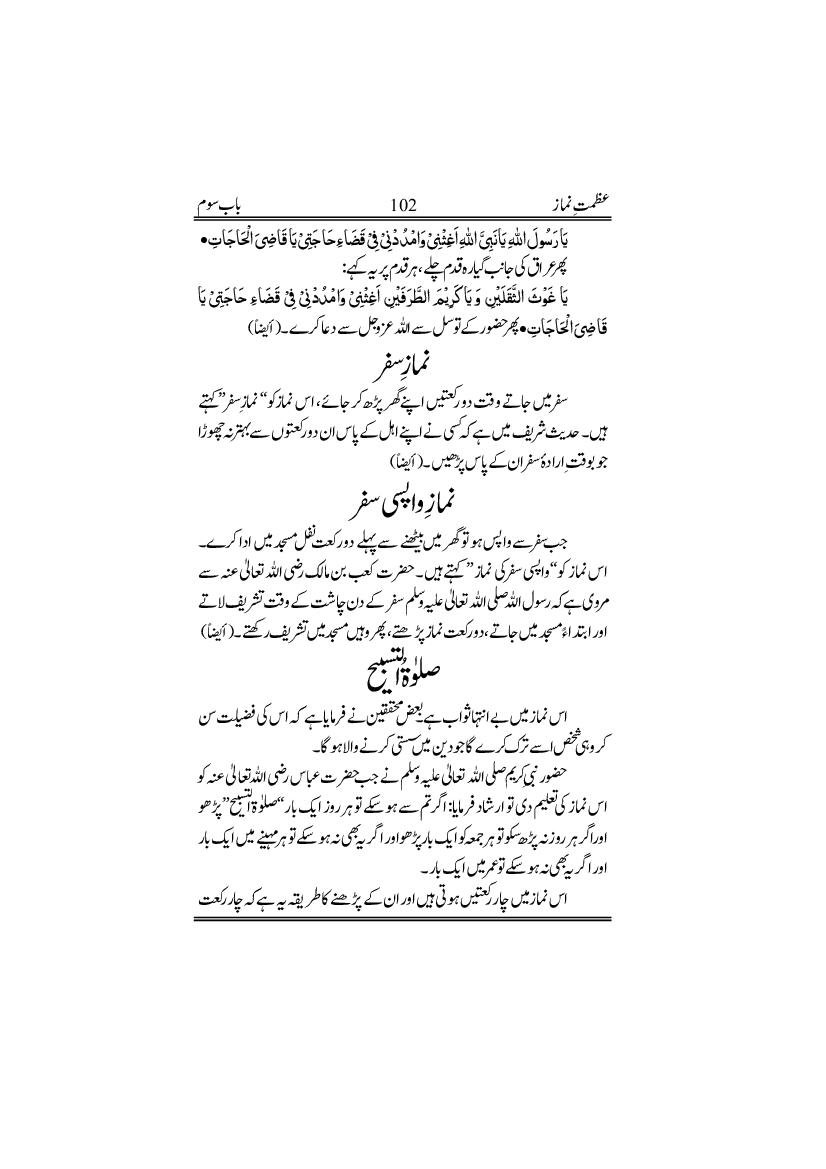 عظمتِ نماز 102 باب سوم
یَا رَسُولَ اللهِ یَا نَبِیَّ اللهِ اَغِثْنِیْ وَامْدُدْنِیْ فِیْ قَضَاءِ حَاجَتِیْ یَا قَاضِیَ الْحَاجَاتِ•
پھر عراق کی جانب گیارہ قدم چلے، ہر قدم پر یہ کہے:
یَا غَوْثَ الثَّقَلَیْنِ وَ یَا کَرِیْمَ الطَّرَفَیْنِ اَغِثْنِیْ وَامْدُدْنِیْ فِیْ قَضَاءِ حَاجَتِیْ یَا
قَاضِیَ الْحَاجَاتِ• پھر حضور کے توسل سے اللہ عزوجل سے دعا کرے۔ (ایضاً)
نمازِ سفر
سفر میں جاتے وقت دو رکعتیں اپنے گھر پڑھ کر جائے، اس نماز کو “نمازِ سفر” کہتے
ہیں۔ حدیث شریف میں ہے کہ کسی نے اپنے اہل کے پاس ان دو رکعتوں سے بہتر نہ چھوڑا
جو بوقتِ ارادۂ سفر ان کے پاس پڑھیں۔ (ایضاً)
نمازِ واپسی سفر
جب سفر سے واپس ہو تو گھر میں بیٹھنے سے پہلے دو رکعت نفل مسجد میں ادا کرے۔
اس نماز کو “واپسی سفر کی نماز” کہتے ہیں۔ حضرت کعب بن مالک رضی اللہ تعالیٰ عنہ سے
مروی ہے کہ رسول اللہ صلی اللہ تعالیٰ علیہ وسلم سفر کے دن چاشت کے وقت تشریف لاتے
اور ابتداءً مسجد میں جاتے، دو رکعت نماز پڑھتے، پھر وہیں مسجد میں تشریف رکھتے۔ (ایضاً)
صلوٰۃُ التسبیح
اس نماز میں بے انتہا ثواب ہے بعض محققین نے فرمایا ہے کہ اس کی فضیلت سن
کر وہی شخص اسے ترک کرے گا جو دین میں سستی کرنے والا ہو گا۔
حضور نبی کریم صلی اللہ تعالیٰ علیہ وسلم نے جب حضرت عباس رضی اللہ تعالیٰ عنہ کو
اس نماز کی تعلیم دی تو ارشاد فرمایا: اگر تم سے ہو سکے تو ہر روز ایک بار “صلوٰۃ التسبیح” پڑھو
اور اگر ہر روز نہ پڑھ سکو تو ہر جمعہ کو ایک بار پڑھو اور اگر یہ بھی نہ ہو سکے تو ہر مہینے میں ایک بار
اور اگر یہ بھی نہ ہو سکے تو عمر میں ایک بار۔
اس نماز میں چار رکعتیں ہوتی ہیں اور ان کے پڑھنے کا طریقہ یہ ہے کہ چار رکعت